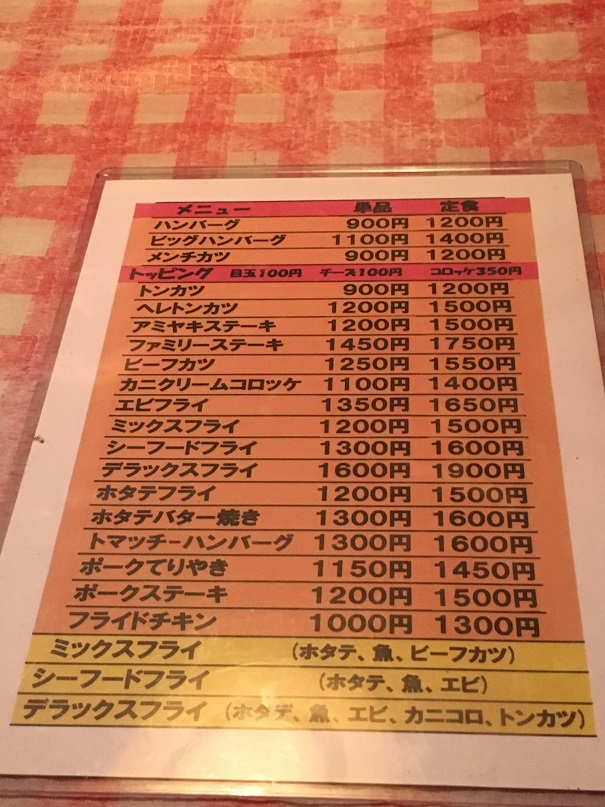 メニュー 単品 定食
ハンバーグ 900円 1200円
ビッグハンバーグ 1100円 1400円
メンチカツ 900円 1200円
トッピング 目玉100円 チーズ100円 コロッケ350円
トンカツ 900円 1200円
ヘレトンカツ 1200円 1500円
アミヤキステーキ 1200円 1500円
ファミリーステーキ 1450円 1750円
ビーフカツ 1250円 1550円
カニクリームコロッケ 1100円 1400円
エビフライ 1350円 1650円
ミックスフライ 1200円 1500円
シーフードフライ 1300円 1600円
デラックスフライ 1600円 1900円
ホタテフライ 1200円 1500円
ホタテバター焼き 1300円 1600円
トマッチ-ハンバーグ 1300円 1600円
ポークてりやき 1150円 1450円
ポークステーキ 1200円 1500円
フライドチキン 1000円 1300円
ミックスフライ (ホタテ、魚、ビーフカツ)
シーフードフライ (ホタテ、魚、エビ)
デラックスフライ (ホタテ、魚、エビ、カニコロ、トンカツ)